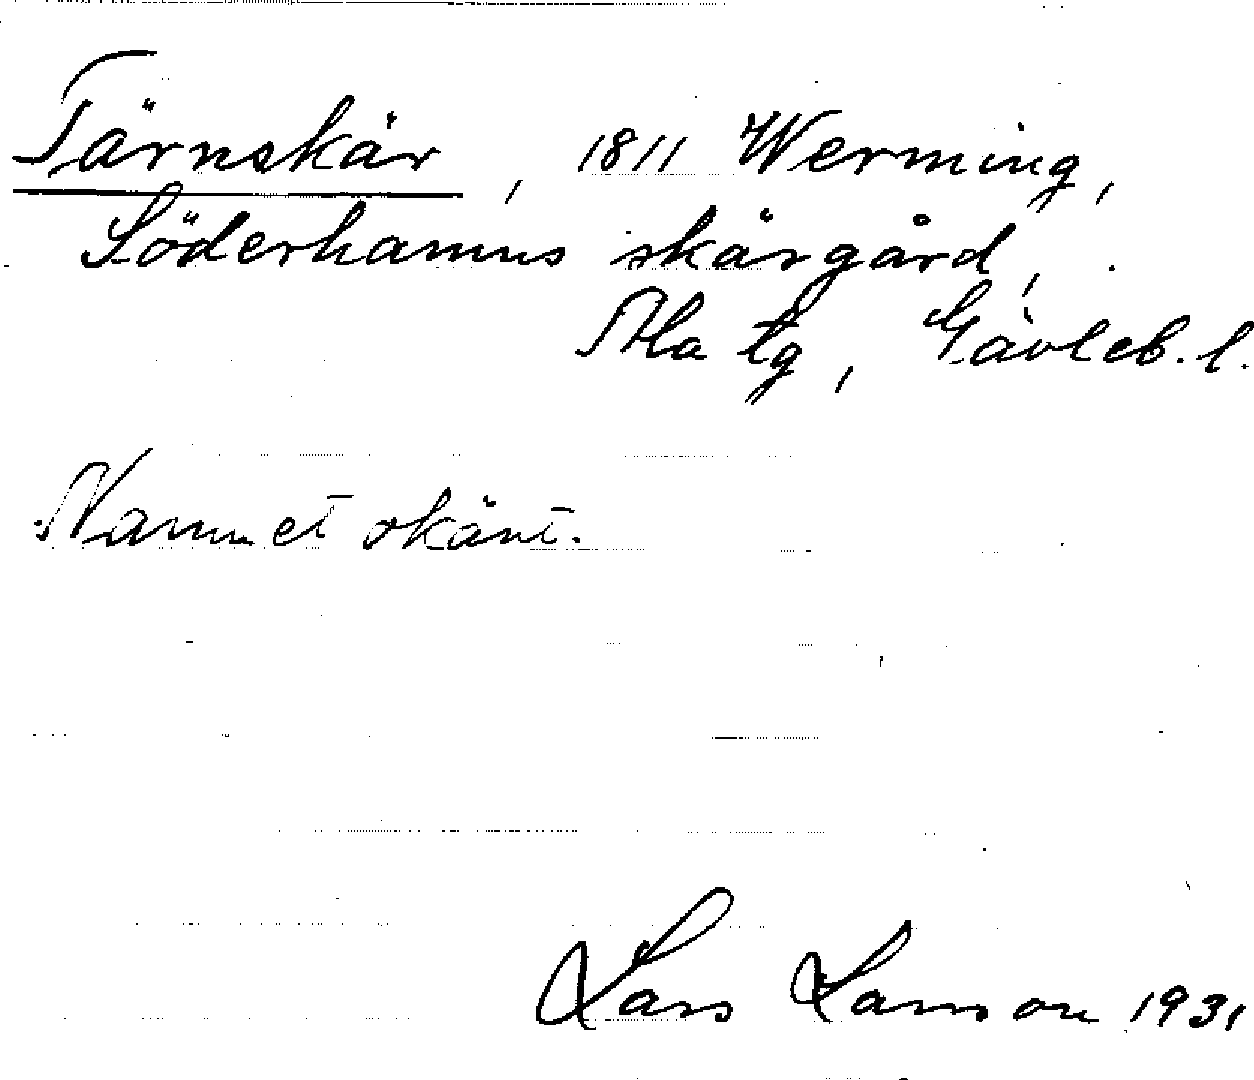 Tärnskär, 1811 Werming,
Söderhamns skärgård,
Ala tg, Gävleb. l.
Namnet okänt.
Lars Larsson 1931